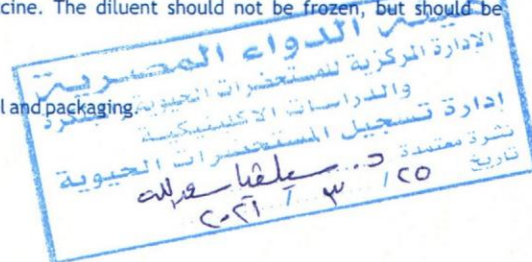 cine. The diluent should not be frozen, but should be
l and packaging.
هيئة الدواء المصرية
الإدارة المركزية للمستحضرات الحيوية والمبتكرة
والدراسات الاكلينيكية
إدارة تسجيل المستحضرات الحيوية
نشرة معتمدة د. سيلفيا سعدالله
تاريخ ٢٥ / ٣ / ٢٠٢١